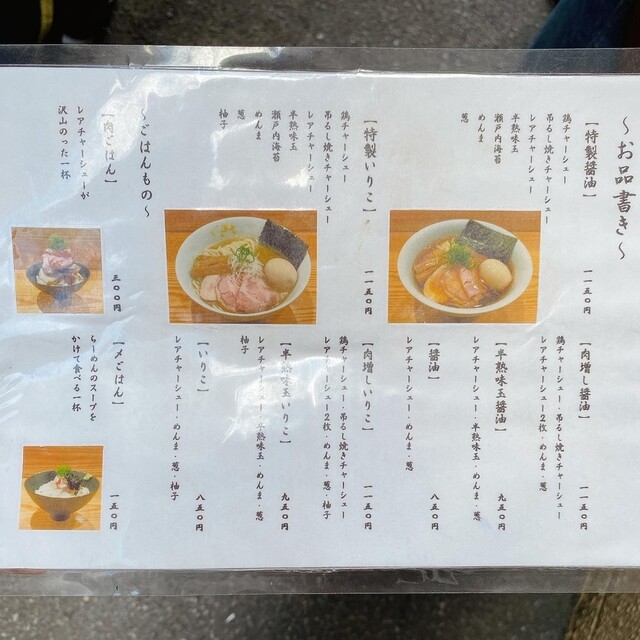 ～お品書き～
【特製醤油】
鶏チャーシュー
吊るし焼きチャーシュー
レアチャーシュー
半熟味玉
瀬戸内海苔
めんま
葱
一一五〇円
【肉増し醤油】
鶏チャーシュー・吊るし焼きチャーシュー
レアチャーシュー2枚・めんま・葱
一一五〇円
【半熟味玉醤油】
レアチャーシュー・半熟味玉・めんま・葱
九五〇円
【醤油】
レアチャーシュー・めんま・葱
八五〇円
【特製いりこ】
鶏チャーシュー
吊るし焼きチャーシュー
レアチャーシュー
半熟味玉
瀬戸内海苔
めんま
葱
柚子
一一五〇円
【肉増しいりこ】
鶏チャーシュー・吊るし焼きチャーシュー
レアチャーシュー2枚・めんま・葱・柚子
一一五〇円
【半熟味玉いりこ】
レアチャーシュー・半熟味玉・めんま・葱
柚子
九五〇円
【いりこ】
レアチャーシュー・めんま・葱・柚子
八五〇円
～ごはんもの～
【肉ごはん】
レアチャーシューが
沢山のった一杯
三〇〇円
【〆ごはん】
らーめんのスープを
かけて食べる一杯
一五〇円